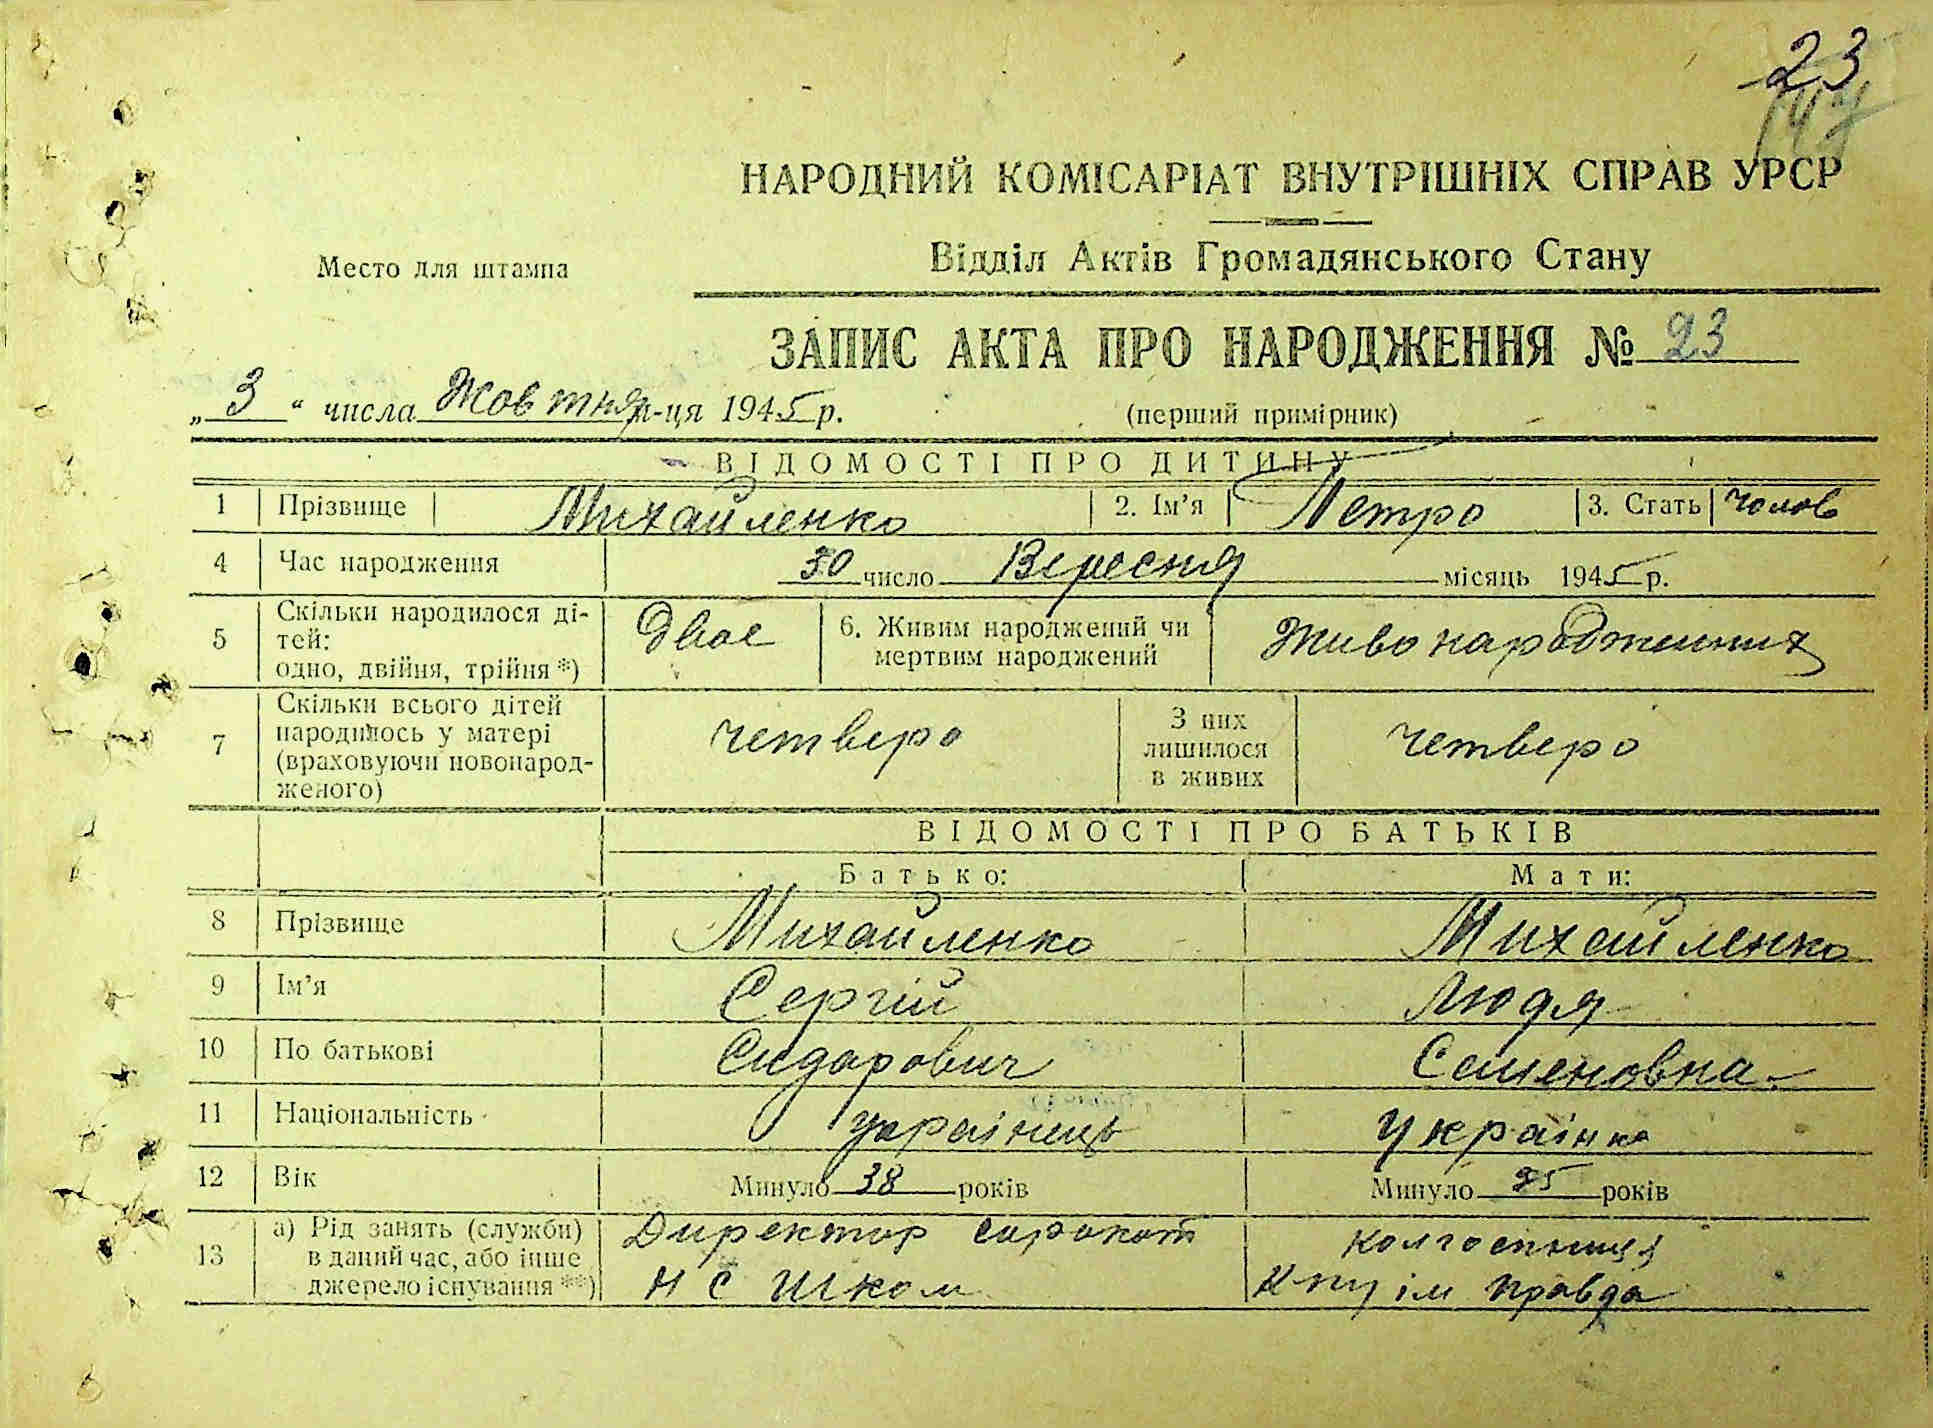 23
147
НАРОДНИЙ КОМІСАРІАТ ВНУТРІШНІХ СПРАВ УРСР
Відділ Актів Громадянського Стану
Место для штампа
ЗАПИС АКТА ПРО НАРОДЖЕННЯ № 23
„ 3 “ числа Жовтня м-ця 1945 р.
(перший примірник)
ВІДОМОСТІ ПРО ДИТИНУ
1 Прізвище Михайленко 2. Ім’я Петро 3. Стать чолов
4 Час народження 30 число Вересня місяць 1945 р.
5 Скільки народилося ді-
тей:
одно, двійня, трійня *) Двое 6. Живим народжений чи
мертвим народжений Живонародженних
7 Скільки всього дітей
народилось у матері
(враховуючи новонарод-
женого) четверо З них
лишилося
в живих четверо
ВІДОМОСТІ ПРО БАТЬКІВ
Батько: Мати:
8 Прізвище Михайленко Михайленко
9 Ім’я Сергій Людя
10 По батькові Сидарович Семеновна
11 Національність українець Українка
12 Вік Минуло 38 років Минуло 25 років
13 а) Рід занять (служби)
в даний час, або інше
джерело існування **) Директор
Н С Школи
колгоспниця
ім Правда